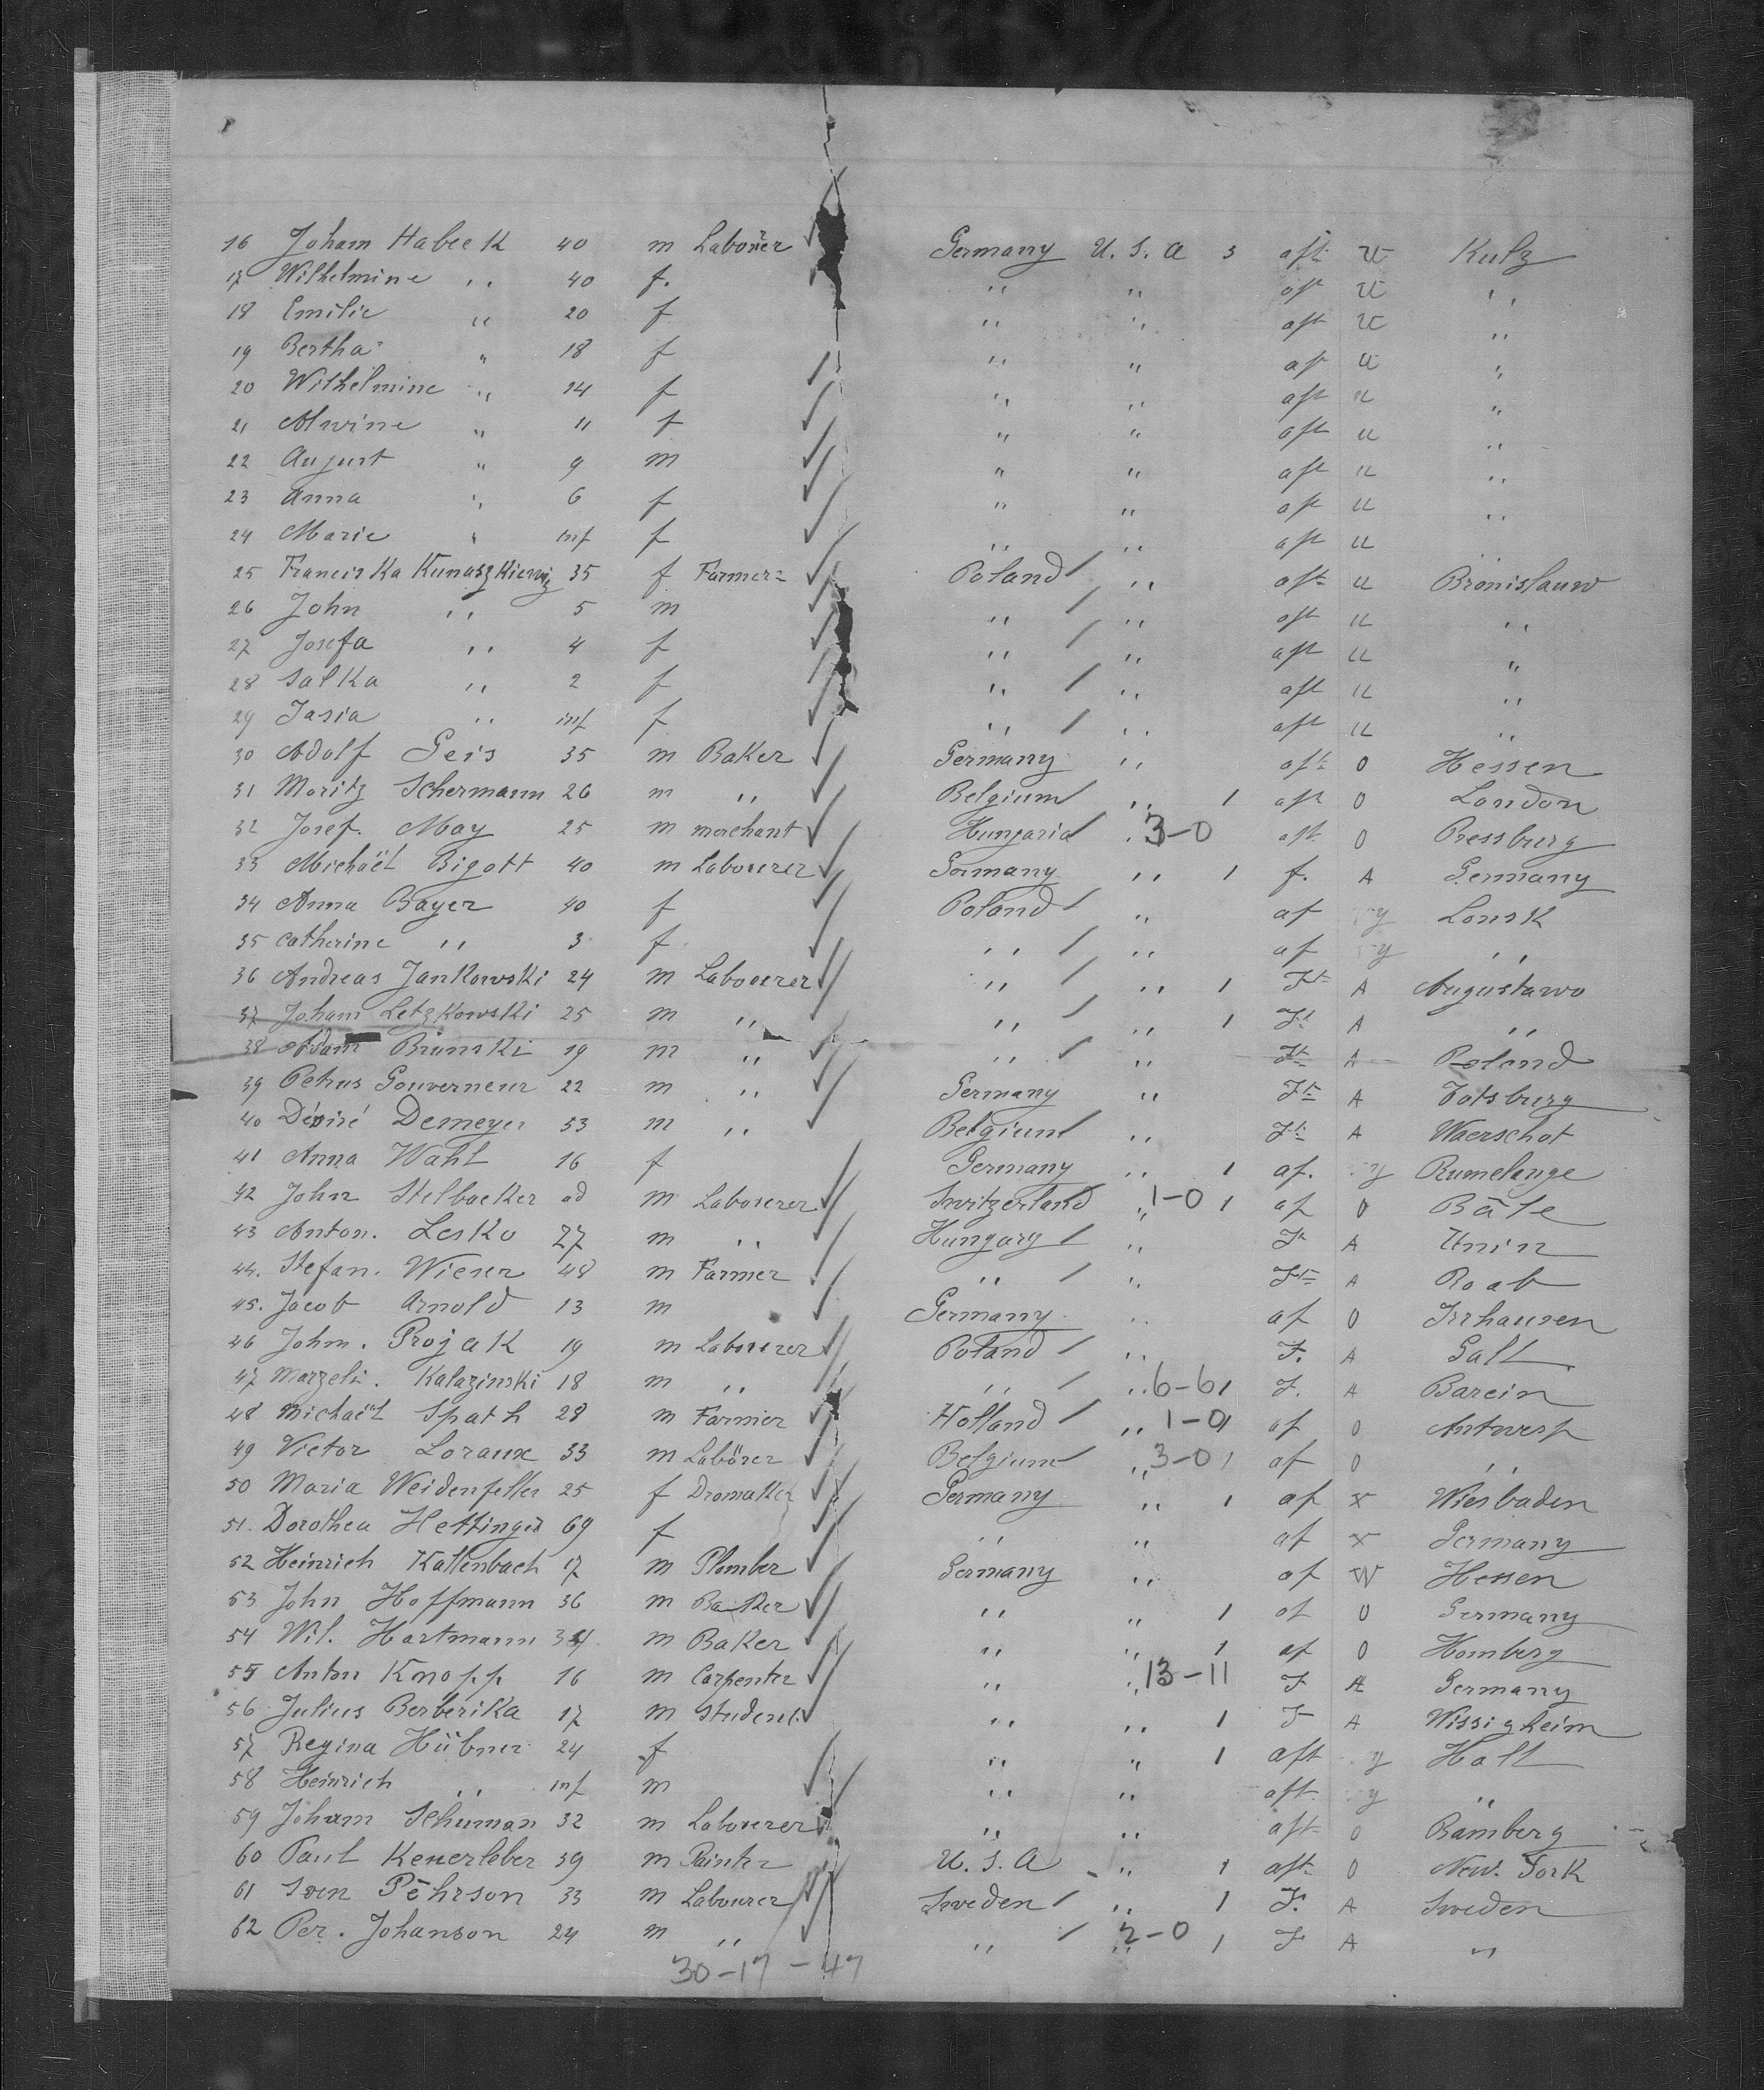 16 Joham Habeck 40 m Labourer Germany U. S. A 3 aft U Kulz
17 Wilhelmine ,, 40 f. ,, ,, aft U ,,
18 Emilie ,, 20 f ,, ,, aft U ,,
19 Bertha ,, 18 f ,, ,, aft U ,,
20 Wilhelmine ,, 14 f ,, ,, aft U ,,
21 Alwine ,, 11 f ,, ,, aft U ,,
22 August ,, 9 m ,, ,, aft U ,,
23 Anna ,, 6 f ,, ,, aft U ,,
24 Marie ,, inf f ,, ,, aft U ,,
25 Franciska Kunaszkiewiz 35 f Farmer Poland ,, aft U Bronislauw
26 John ,, 5 m ,, ,, aft U ,,
27 Josefa ,, 4 f ,, ,, aft U ,,
28 Salka ,, 2 f ,, ,, aft U ,,
29 Jasia ,, inf f ,, ,, aft U ,,
30 Adolf Geis 35 m Baker Germany ,, aft O Hessen
31 Moritz Schermann 26 m ,, Belgium ,, 1 aft O London
32 Josef. May 25 m merchant Hungaria ,, 3-0 aft O Pressburg
33 Michaël Bigott 40 m Labourer Germany ,, 1 f. A Germany
34 Anna Bayer 40 f Poland ,, af y Lonsk
35 Catherine ,, 3 f ,, ,, af y ,,
36 Andreas Jankowski 24 m Labourer ,, ,, 1 Ft A Augustawo
37 Joham Letzkowski 25 m ,, ,, ,, 1 Ft A ,,
38 Adam Brunski 19 m ,, ,, ,, Ft A Poland
39 Petrus Gouverneur 22 m ,, Germany ,, Ft A Totsburg
40 Désiré Demeyer 53 m ,, Belgium ,, Ft A Waerschot
41 Anna Wahl 16 f Germany ,, 1 af. y Rumelange
42 John Stelbacker ad m Labourer Switzerland ,, 1-0 1 af O Bâle
43 Anton. Lesko 27 m ,, Hungary ,, Ft A Unin
44. Stefan. Wiener 48 m Farmer ,, ,, Ft A Raab
45. Jacob Arnold 13 m Germany ,, af O Irrhausen
46 Johm. Projak 19 m Labourer Poland ,, F. A Gall
47 Marzeli. Kalazinski 18 m ,, ,, ,, 6-6 1 F. A Barcin
48 Michaël Spath 28 m Farmer Holland ,, 1-0 1 af O Antwerp
49 Victor Loraux 33 m Labörer Belgium ,, 3-0 1 af O ,,
50 Maria Weidenfeller 25 f Dromaker Germany ,, 1 af x Wiesbaden
51. Dorothea Hettinger 69 f ,, ,, af x Germany
52 Heinrich Kattenbach 17 m Plomber Germany ,, af W Hessen
53 John Hoffmann 36 m Baker ,, ,, 1 af O Germany
54 Wil. Hartmann 34 m Baker ,, ,, 1 af O Homberg
55 Anton Knopp 16 m Carpenter ,, ,, 13-11 F A Germany
56 Julius Berberika 17 m Student ,, ,, 1 F A Wissigheim
57 Regina Hübner 24 f ,, ,, 1 aft y Hall
58 Heinrich ,, inf m ,, ,, aft y ,,
59 Joham Schuman 32 m Labourer ,, ,, aft O Bamberg
60 Paul Keuerleber 39 m Painter U. S. A ,, 1 aft O New. York
61 Sven Pehrson 33 m Labourer Sweden ,, 1 F. A Sweden
62 Per. Johanson 24 m ,, ,, ,, 2-0 1 F A ,,
30-17-47